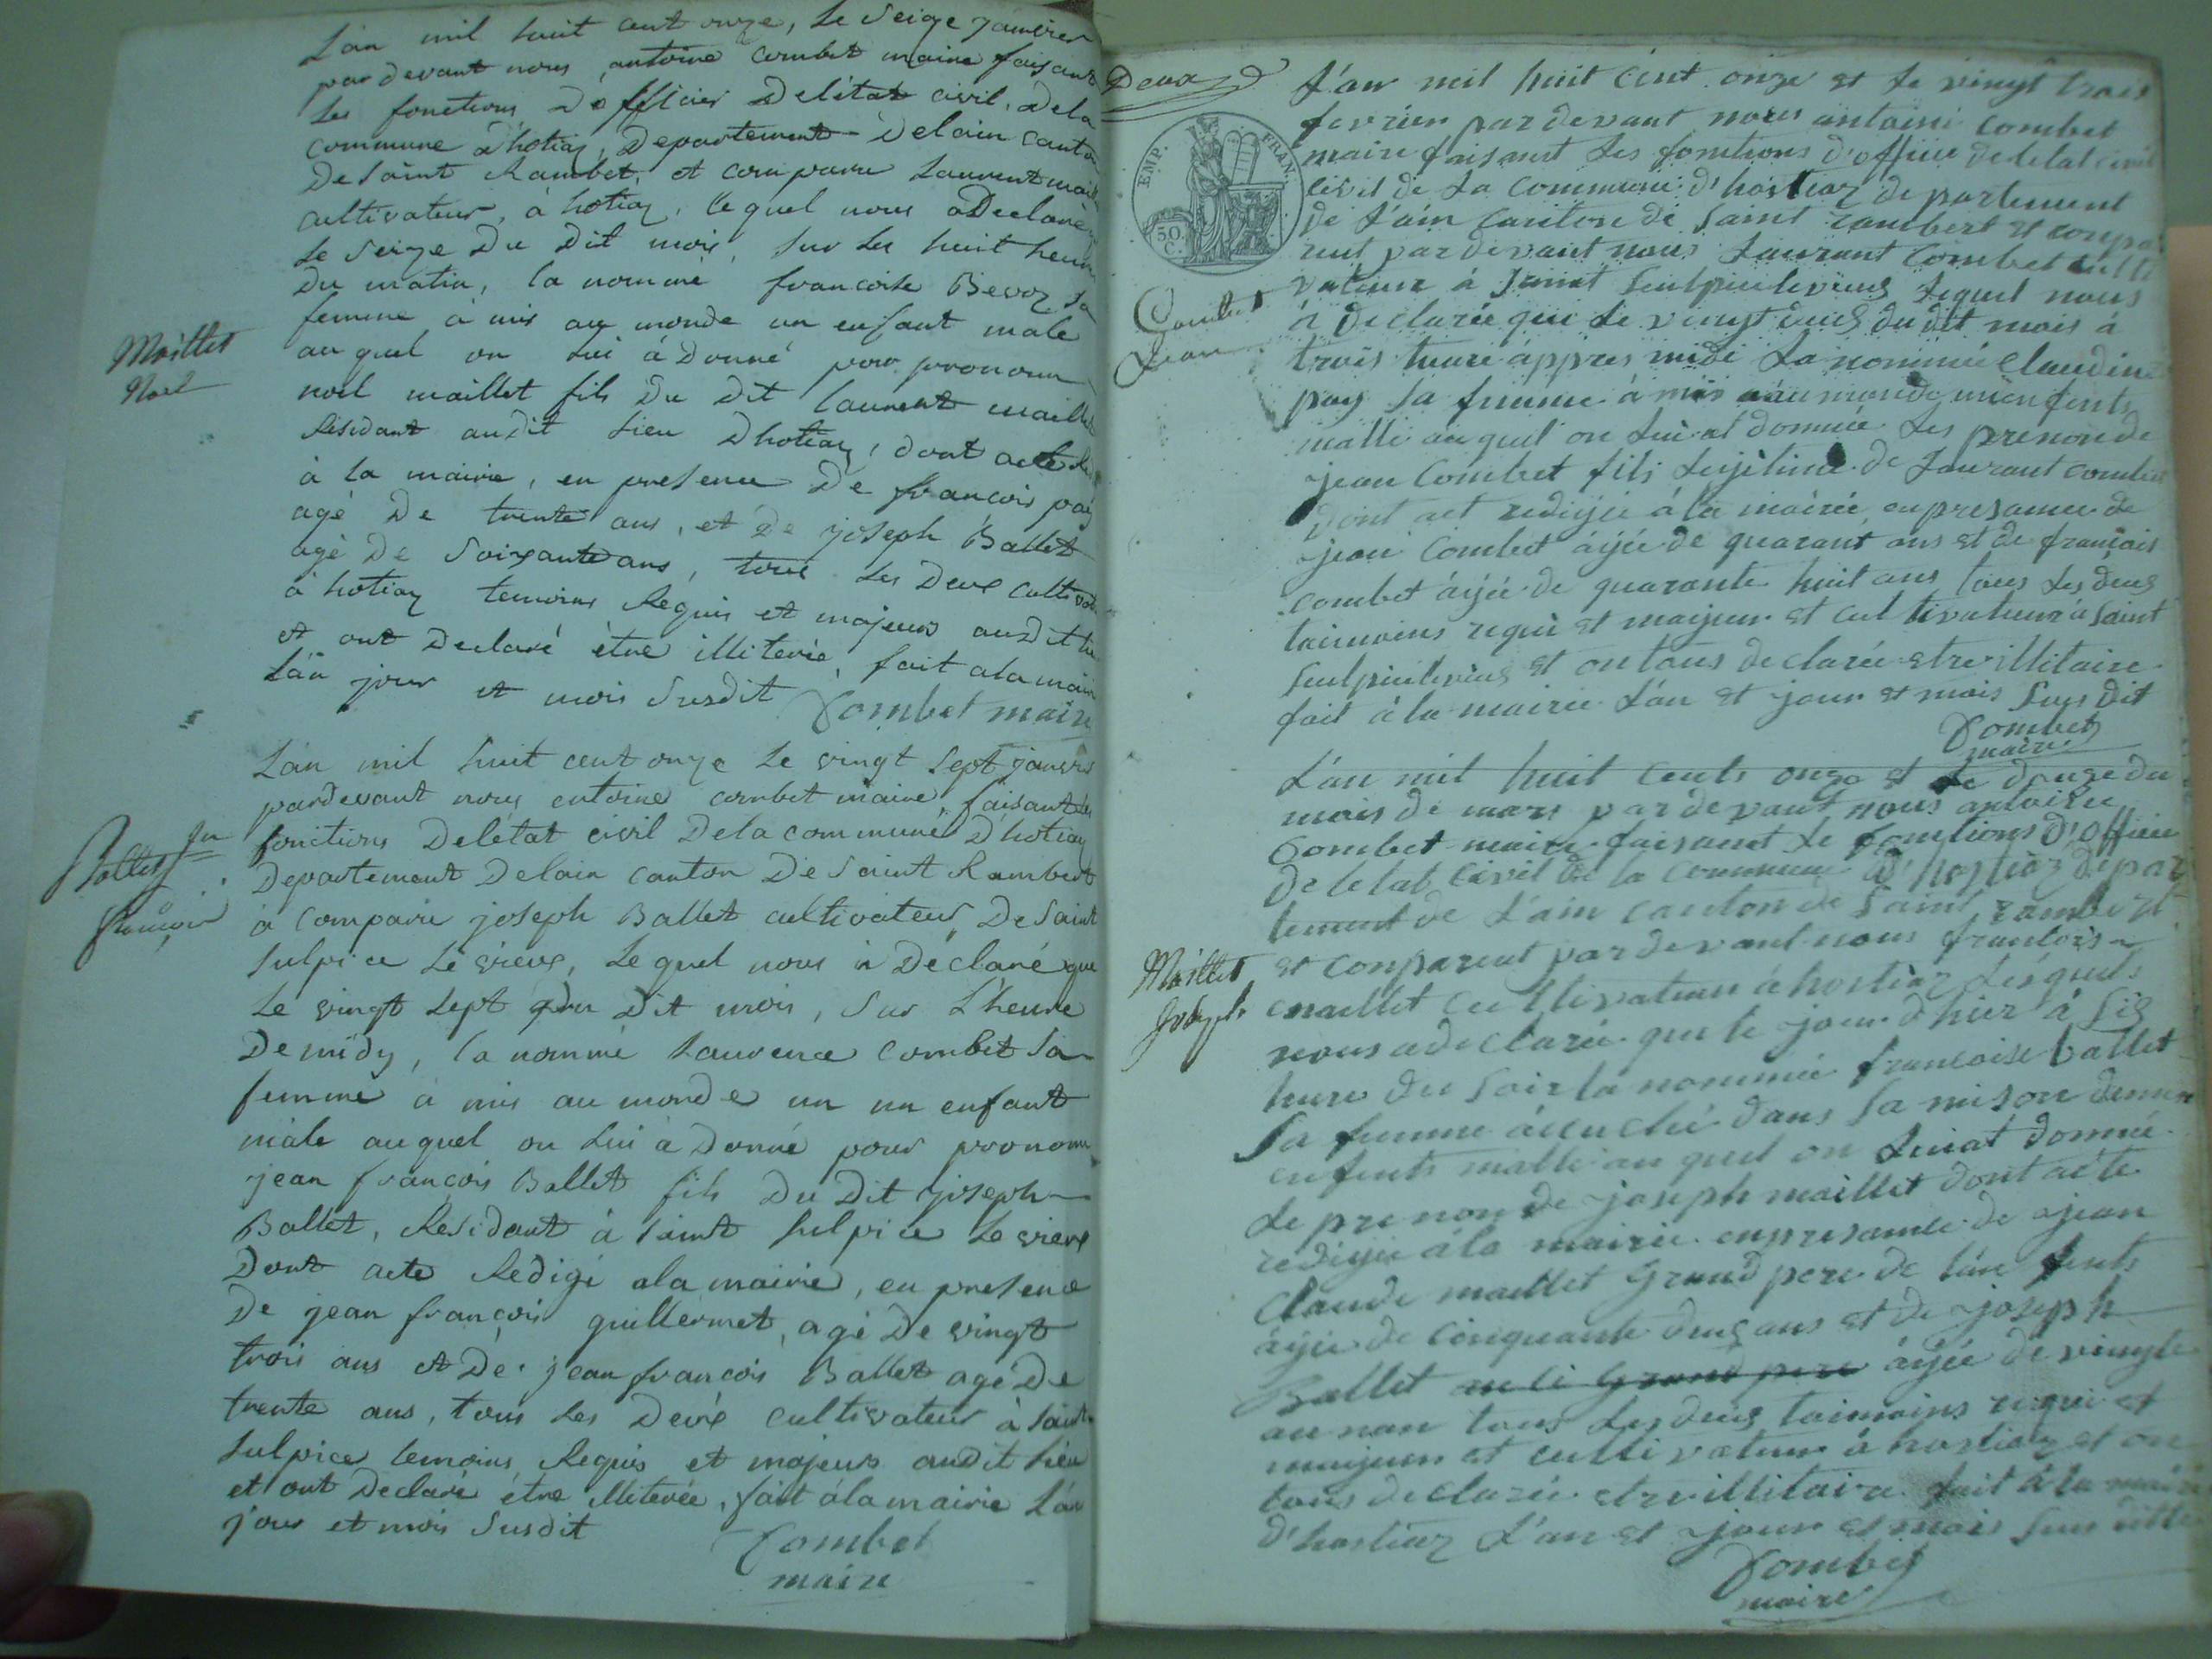 L'an mil huit cent onze, le seize janvier
par devant nous, antoine combet maire faisant
les fonctions d'officier de l'état civil, de la
commune d'hotiaz, departement de lain canton
de saint Rambet, et comparu laurent mail
cultivateur, à hotiaz, lequel nous a declaré
le seize du dit mois, sur les huit heure
du matin, la nommé francoise Bevoz sa
femme à mis au monde un enfant male
Maillet
Noel
auquel on lui à donné pour pronom
noel maillet fils du dit laurent maillet
Residant audit lieu dhotiaz, dont acte
à la mairie, en presence de francois pay
agé de trente ans, et de joseph Ballet
agé de soixante ans, tous les deux cultivat
à hotiaz temoins Requis et majeurs audit lie
et ont declaré être illiterée, fait a la mairie
L'an jour et mois susdit Combet maire
L'an mil huit cent onze le vingt sept janvier
pardevant nous entoine combet maire, faisant les
Ballet jn
francois
fonctions de létat civil de la commune d'hotiaz
Departement de lain canton de saint Rambert
à comparu joseph Ballet cultivateur, de saint
sulpice le vieux, lequel nous à declaré que
le vingt sept du dit mois, sur l'heure
de midy, la nommé Laurence combet sa
femme à mis au monde un un enfant
mâle auquel on lui à donné pour pronom
jean françois Ballet fils du dit joseph
Ballet, Residant à saint sulpice le vieux
Dont acte Redigé a la mairie, en presence
De jean françois guillermet, agé de vingt
trois ans et de jean francois Ballet agé de
trente ans, tous les deux cultivateur à saint
sulpice temoins Requis et majeurs audit lieu
et ont declaré être illiterée, fait à la mairie L'an
jour et mois susdit
Combet
maire
Deux
EMP. FRAN.
50 C.
L'an mil huit cent onze et le vingt trois
fevrier par devant nous antoine Combet
maire faisant les fonctions d'office de letat civil
civil de la Commune d'hostiaz departement
de l'ain canton de saint rambert et compa
rut par devant nous Laurant Combet culti
vateur à saint seulpiceleviens lequel nous
Combet
Jean
à declarée que le vingt deus du dit mois à
trois heure àppres midi la nommée Claudine
pay sa femme à mis aúu monde unenfents
malle au quel on lui at donnée les prenon de
jean Combet fils lejitime de Laurant combet
dont act redigée à la mairie en presance de
jean Combet àjée de quarant ans et de francois
combet àjée de quarante huit ans tous les deus
taimoins requi et majeur et cultivateur à saint
seulpiceleviens et on tous declarée etre illitaire
fait à la mairie l'an et jour et mois sus dit
Combet
maire
L'an mil huit cents onze et le douze du
mois de mars par devant nous antoine
Combet maire faisant le fonctions d'office
de letat civil de la commune d'hostiaz depar
tement de L'ain canton de saint rambert
Maillet
Joseph
et comparut par devant nous francois
maillet cultivateur à hostiaz lequel
nous a declarée que le jour d'hier à sis
heure du soir la nommée francoise ballet
sa femme àcuché dans sa mison dunun
enfents malle au quel on luiat donnée
le prenon de joseph maillet dont acte
redigée à la mairie en presance de jean
Claude maillet Grand pere de l'anfents
àjée de cinquante deus ans et de joseph
Ballet àjée de vingte
au nan tous les deus taimoins requi et
maijeur et cultivateur à hostiaz et on
tous declarée etre illitaire fait à la mairie
d'hostiaz L'an et jour et mois sus ditte
Combet
maire